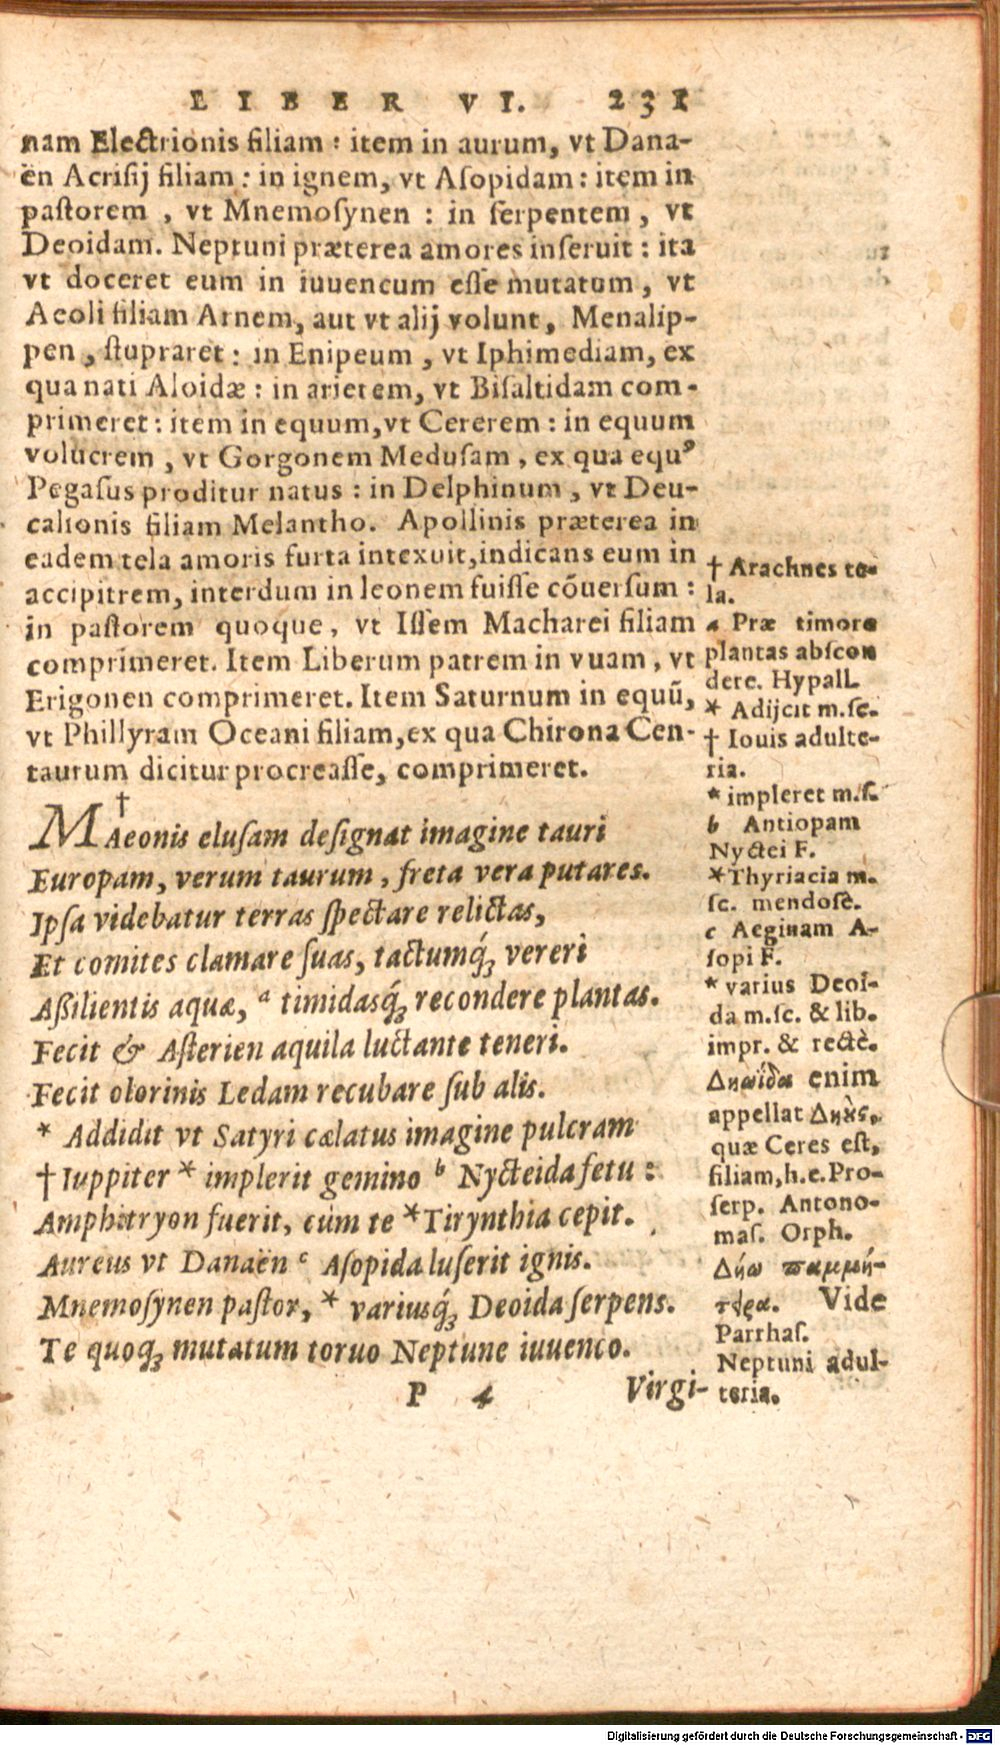 LIBER VI. 231
nam Electrionis filiam : item in aurum, vt Dana-
ën Acrisij filiam : in ignem, vt Asopidam : item in
pastorem , vt Mnemosynen : in serpentem , vt
Deoidam. Neptuni præterea amores inseruit : ita
vt doceret eum in iuuencum esse mutatum, vt
Aeoli filiam Arnem, aut vt alij volunt, Menalip-
pen , stupraret : in Enipeum , vt Iphimediam, ex
qua nati Aloidæ : in arietem, vt Bisaltidam com-
primeret : item in equum, vt Cererem : in equum
volucrem , vt Gorgonem Medusam , ex qua equꝰ
Pegasus proditur natus : in Delphinum , vt Deu-
calionis filiam Melantho. Apollinis præterea in
eadem tela amoris furta intexuit, indicans eum in
accipitrem, interdum in leonem fuisse cõuersum :
in pastorem quoque, vt Issem Macharei filiam
comprimeret. Item Liberum patrem in vuam, vt
Erigonen comprimeret. Item Saturnum in equũ,
vt Phillyram Oceani filiam, ex qua Chirona Cen-
taurum dicitur procreasse, comprimeret.
†
MAeonis elusam designat imagine tauri
Europam, verum taurum, freta vera putares.
Ipsa videbatur terras spectare relictas,
Et comites clamare suas, tactumq́; vereri
Assilientis aquæ, a timidasq́; recondere plantas.
Fecit & Asterien aquila luctante teneri.
Fecit olorinis Ledam recubare sub alis.
* Addidit vt Satyri cælatus imagine pulcram
† Iuppiter * implerit gemino b Nycteida fetu :
Amphitryon fuerit, cùm te * Tirynthia cepit.
Aureus vt Danaën c Asopida luserit ignis.
Mnemosynen pastor, * variusq́; Deoida serpens.
Te quoq; mutatum toruo Neptune iuuenco.
P 4 Virgi-
† Arachnes te-
la.
a Præ timore
plantas abscon
dere. Hypall.
* Adijcit m.sc.
† Iouis adulte-
ria.
* impleret m.s.
b Antiopam
Nyctei F.
* Thyriacia m.
sc. mendosè.
c Aeginam A-
sopi F.
* varius Deoi-
da m.sc. & lib.
impr. & rectè.
Δηωΐδα enim
appellat Δηȣ̃ς,
quæ Ceres est,
filiam, h.e. Pro-
serp. Antono-
mas. Orph.
Δήω παμμή-
τειρα. Vide
Parrhas.
Neptuni adul-
teria.
Digitalisierung gefördert durch die Deutsche Forschungsgemeinschaft - DFG